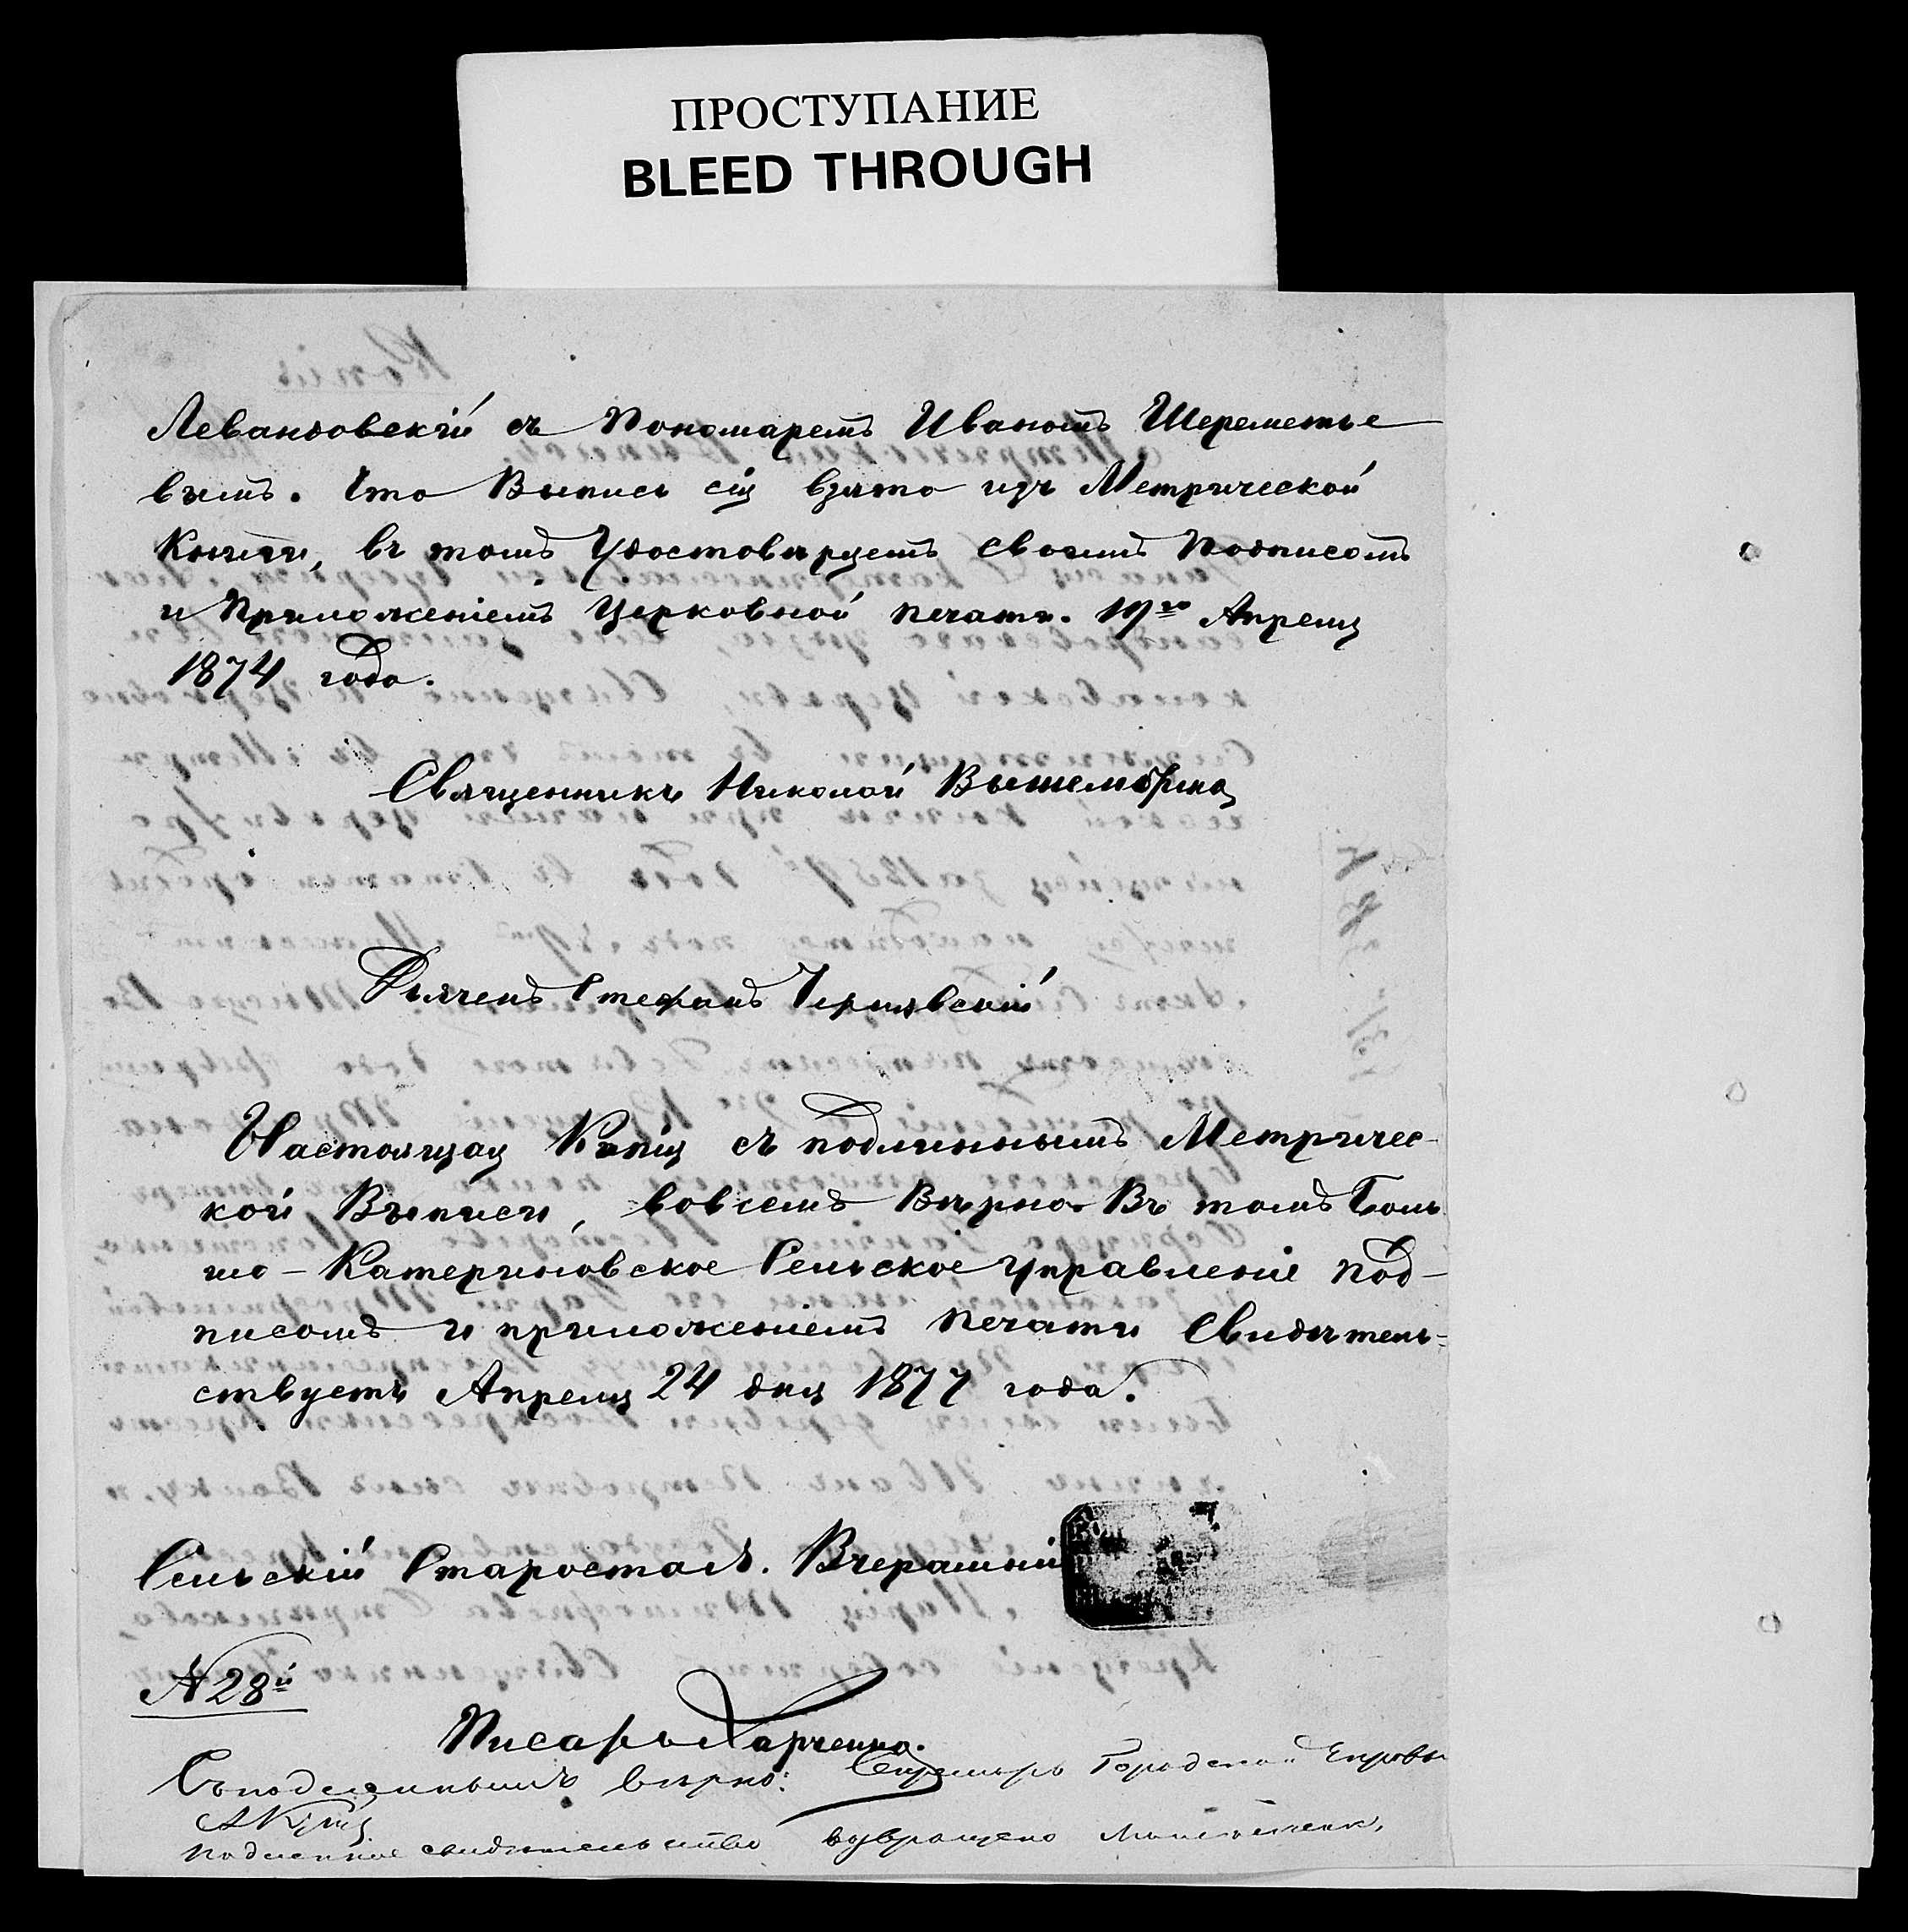 ПРОСТУПАНИЕ
BLEED THROUGH
Левандовскій съ Пономаремъ Иваномъ Шереметье
вымъ. Что Выпись сія взята изъ Метрической
Книги, въ томъ Удостоверяемъ своимъ Подписомъ
и Приложеніемъ Церковной печати. 19го Апреля
1874 года.
Священникъ Николай
Дьячекъ Стефанъ Чернявскій
Настоящая Копія съ подлиннымъ Метричес-
кой Выписи, вовсемъ Вѣрно. Въ томъ Боль
шо-Катериновское Сельское Управленіе под-
писомъ и приложеніемъ печати Свидѣтель-
ствуетъ Апреля 24 дня 1877 года.
Сельскій Староста Вчерашній
№ 28й
Писарь Харченко.
Съ подлиннымъ вѣрно: Секретарь Городской Управы
Подлинное свидѣтельство возвращено